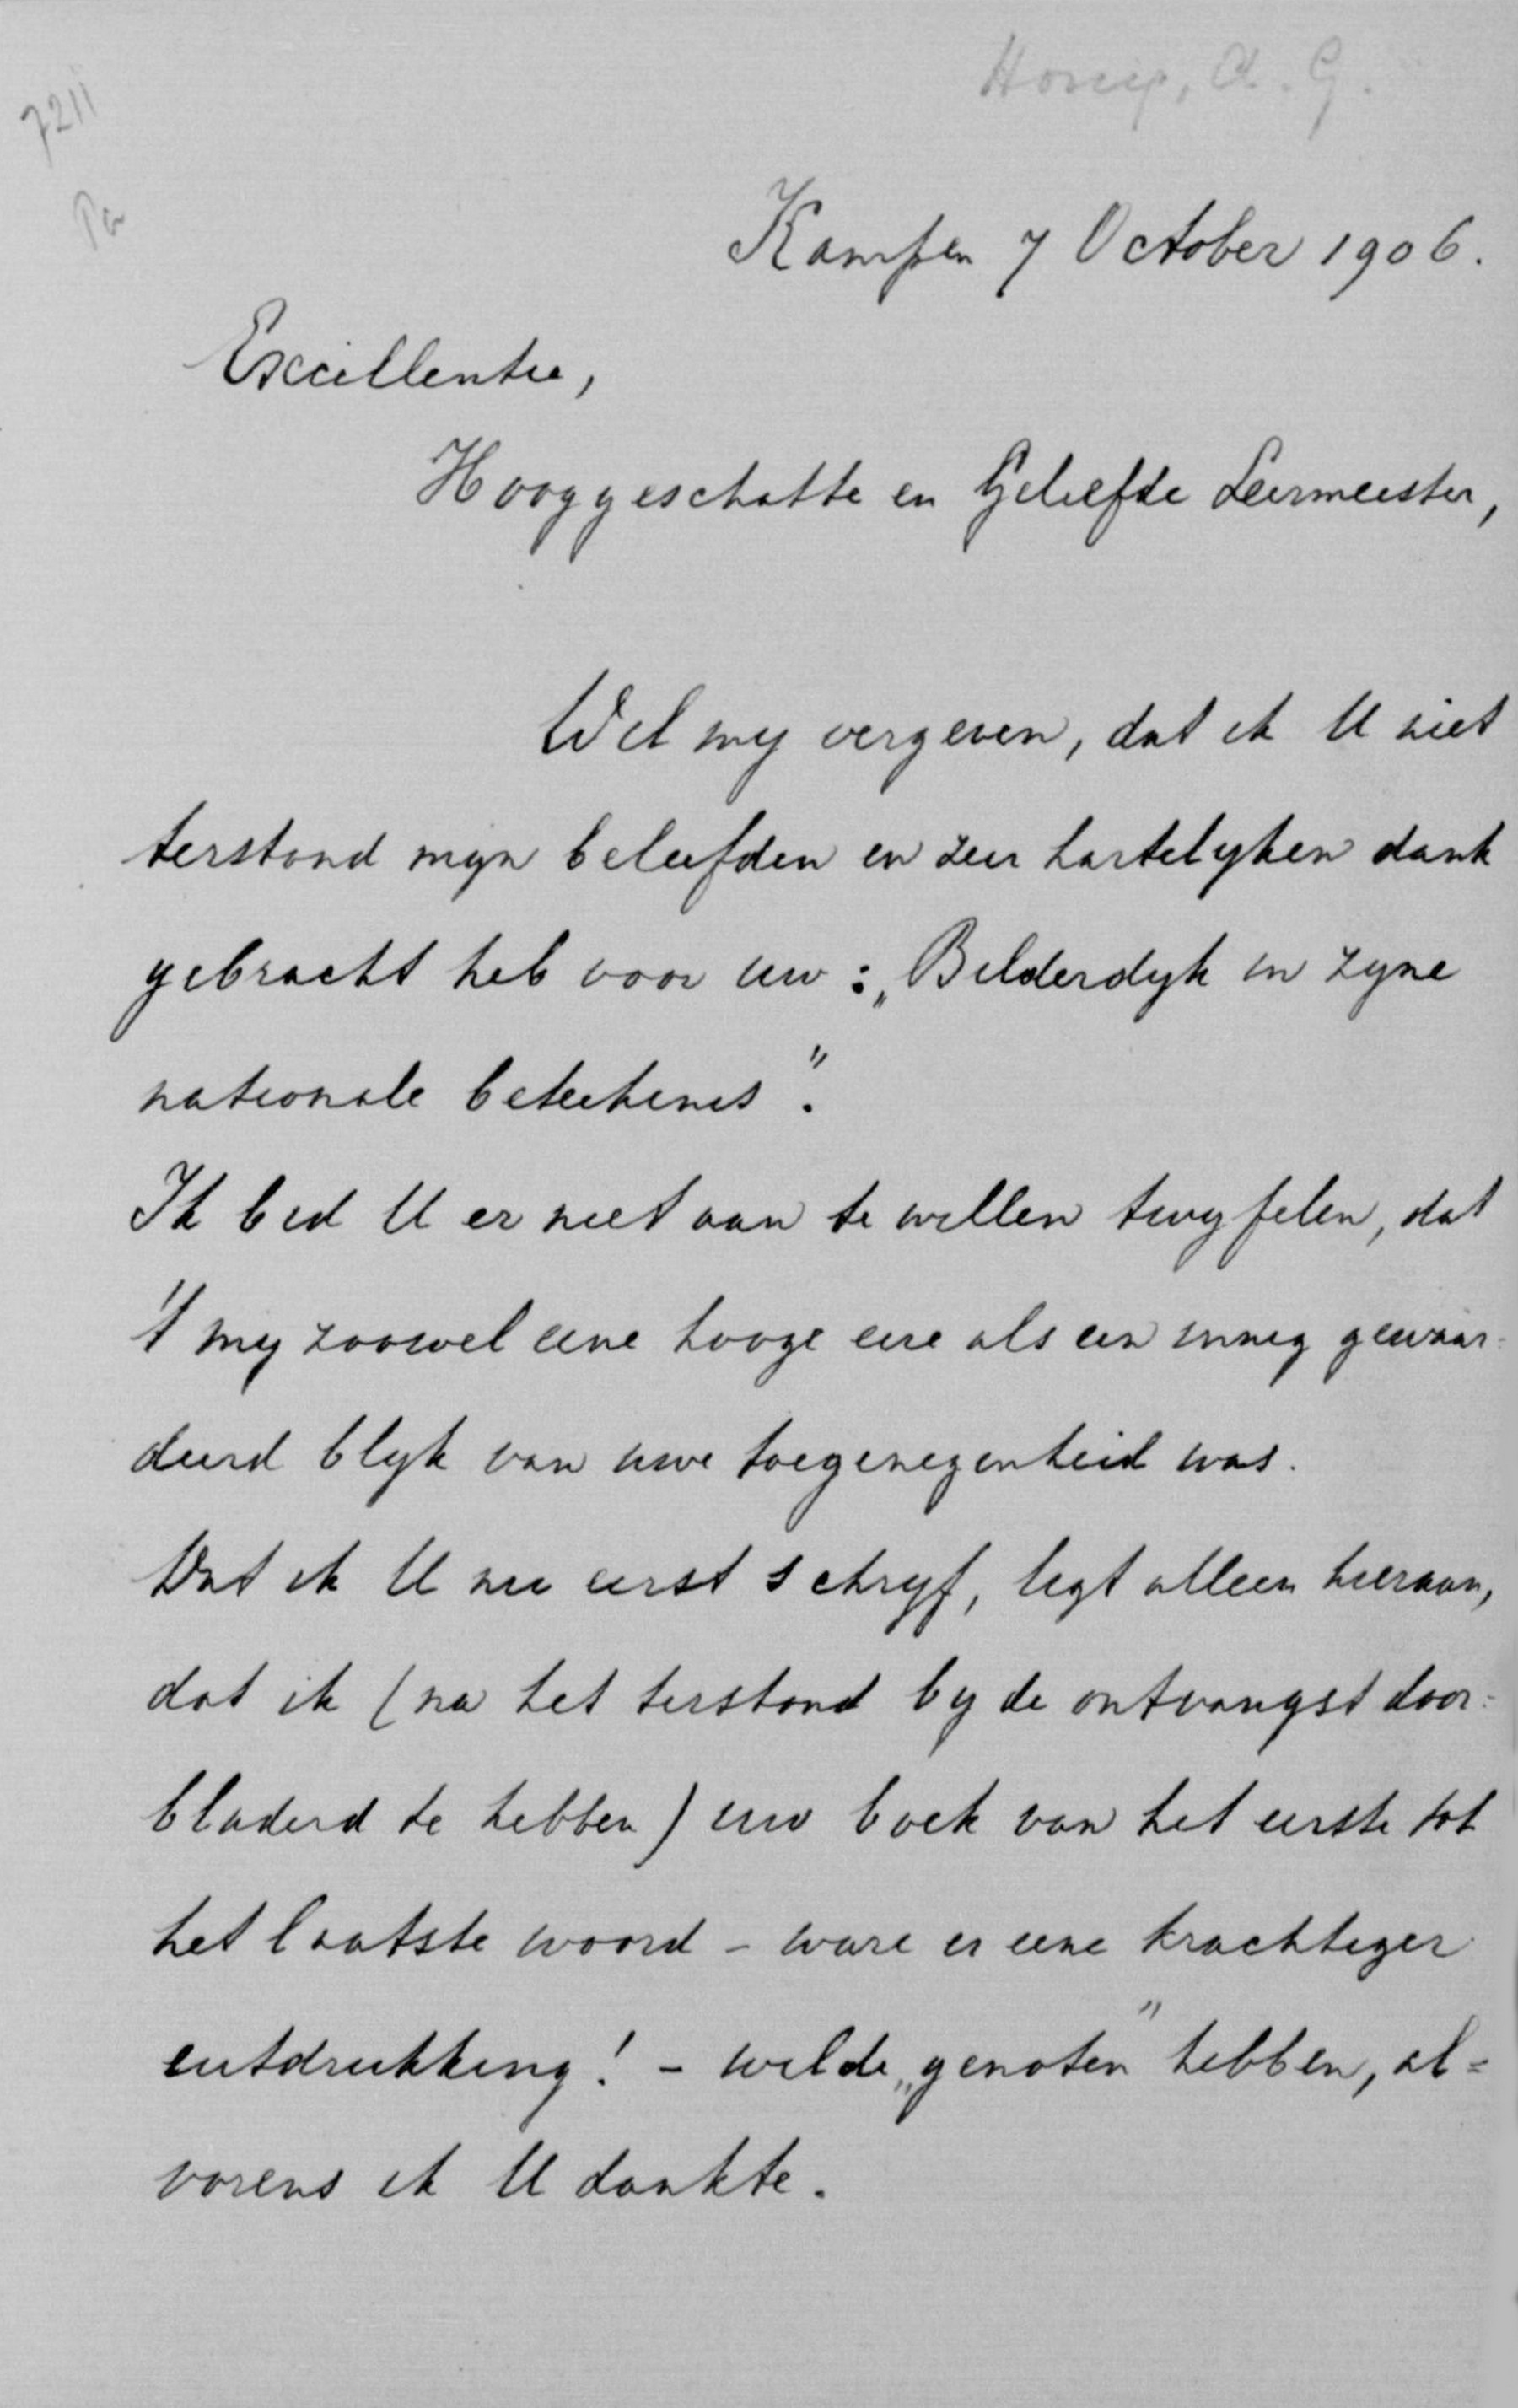 Honig, A. G.
7211
Pa
Kampen 7 October 1906.
Excellentie,
Hooggeschatte en Geliefde Leermeester,
Wil mij vergeven, dat ik U niet
terstond mijn beleefden en zeer hartelijken dank
gebracht heb voor uw: „Bilderdijk in zijne
nationale beteekenis".
Ik bid U er niet aan te willen twijfelen, dat
't mij zoowel eene hooge eere als een innig gewaar-
deerd blijk van uwe toegenegenheid was.
Dat ik U nu eerst schrijf, ligt alleen hieraan,
dat ik (na het terstond bij de ontvangst door-
bladerd te hebben) uw boek van het eerste tot
het laatste woord - ware er eene krachtiger
uitdrukking! - wilde „genoten" hebben, al-
vorens ik U dankte.